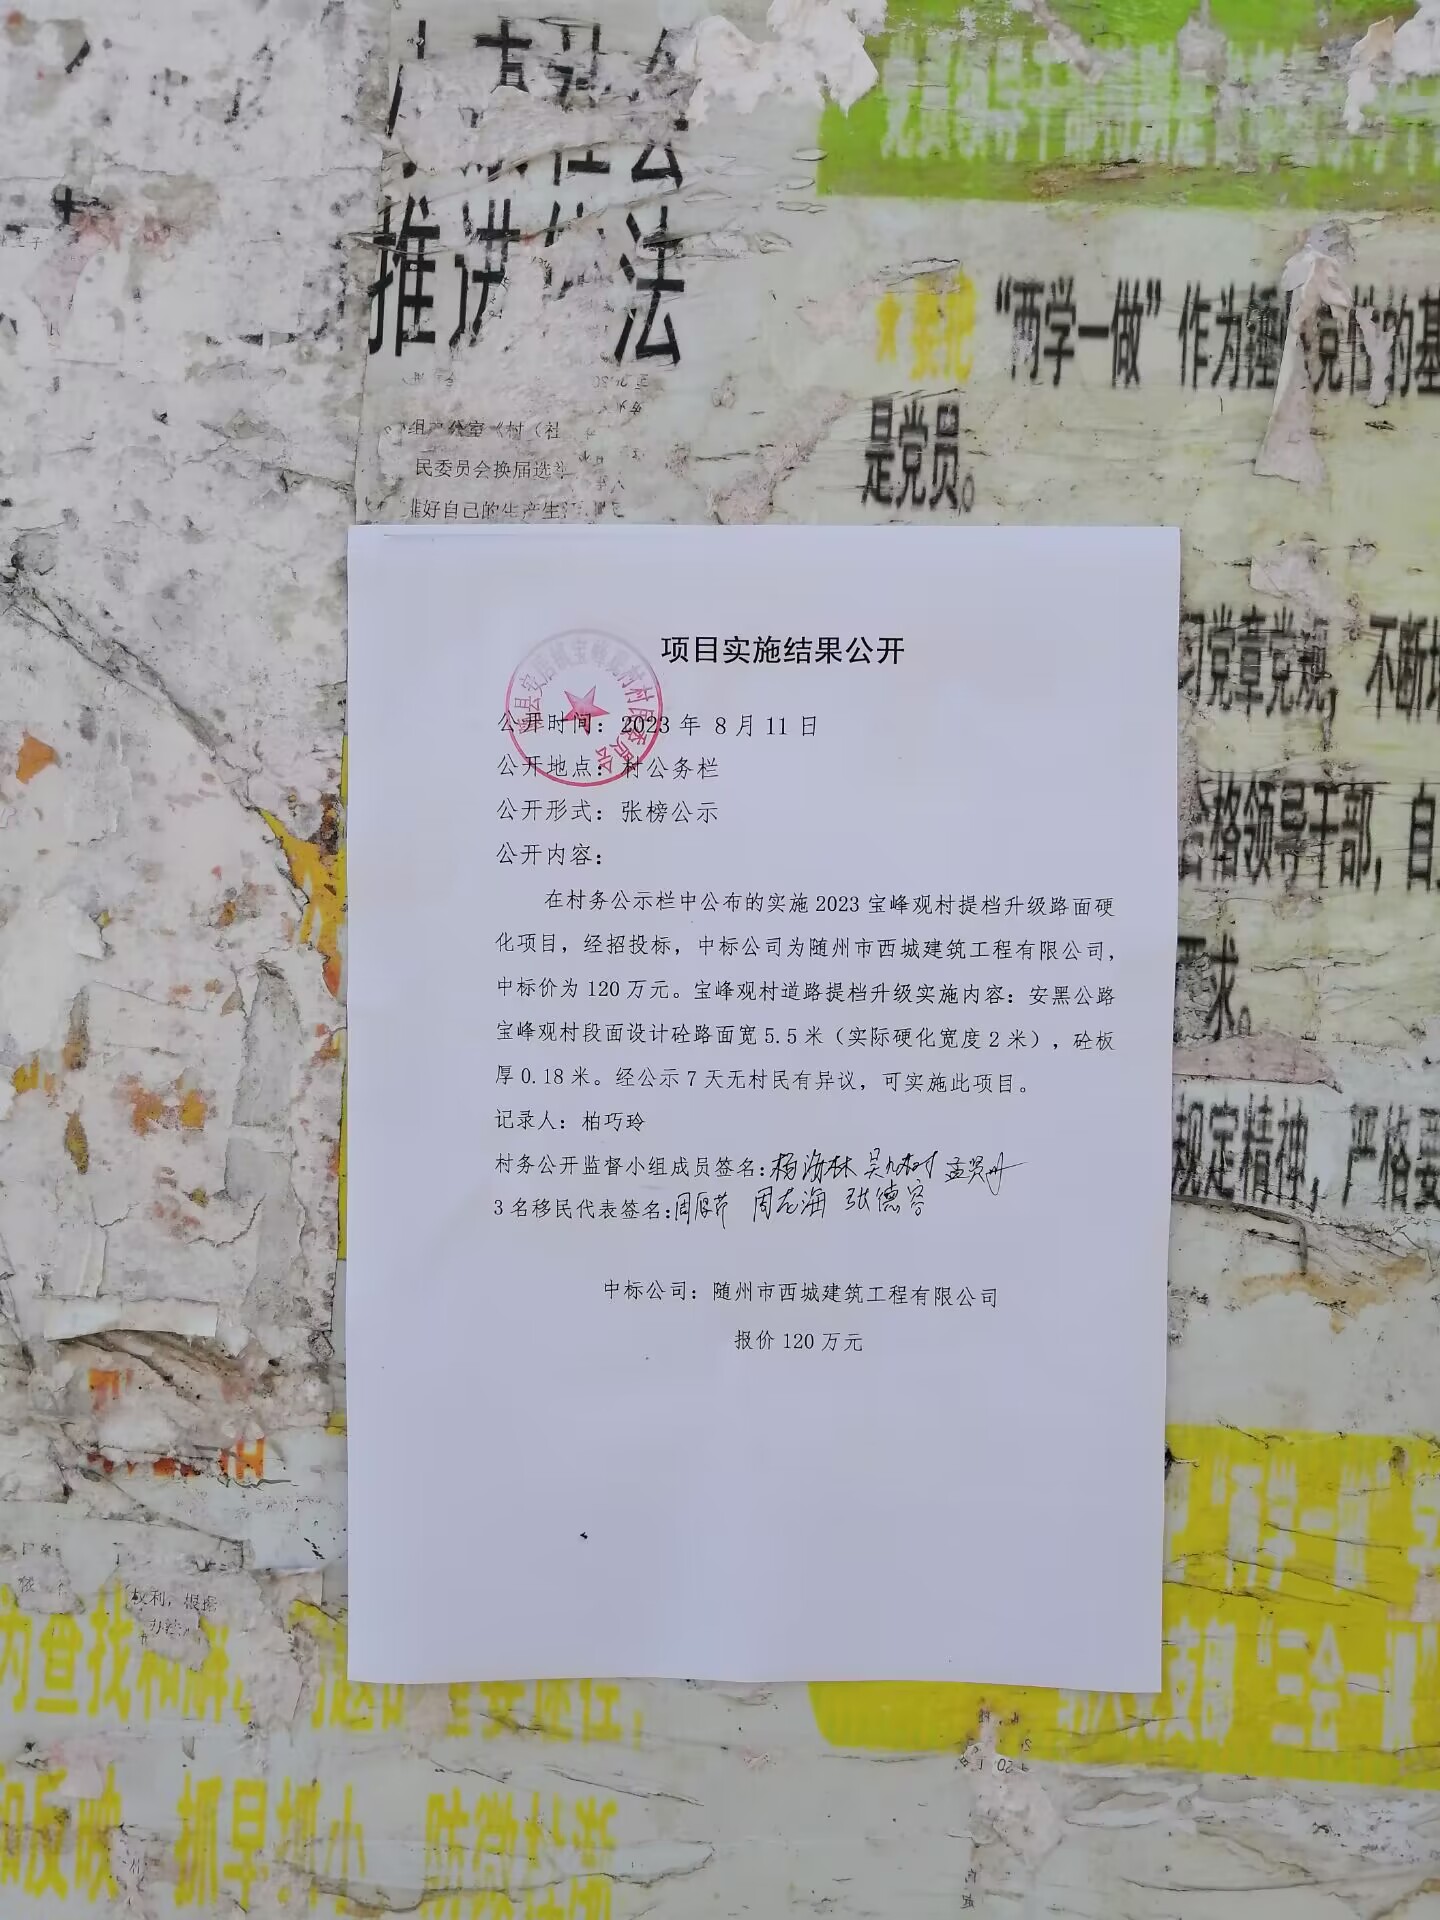 推进 法
"两学一做"作为锤 党性的基
是党员。
组 公室《村（社
民委员会换届选
好自己的生产生
习党章党规，不断
合格领导干部，自
求。
规定精神，严格要
项目实施结果公开
公开时间：2023 年 8 月 11 日
公开地点：村公务栏
公开形式：张榜公示
公开内容：
在村务公示栏中公布的实施 2023 宝峰观村提档升级路面硬
化项目，经招投标，中标公司为随州市西城建筑工程有限公司，
中标价为 120 万元。宝峰观村道路提档升级实施内容：安黑公路
宝峰观村段面设计砼路面宽 5.5 米（实际硬化宽度 2 米），砼板
厚 0.18 米。经公示 7 天无村民有异议，可实施此项目。
记录人：柏巧玲
村务公开监督小组成员签名：杨海林
3 名移民代表签名： 张德容
中标公司：随州市西城建筑工程有限公司
报价 120 万元
县安居镇宝峰观村村民委员会
"两学一做"
权利，根据
办法
为查找和解
支部"三会一课
和反映 抓早抓小 防微杜渐